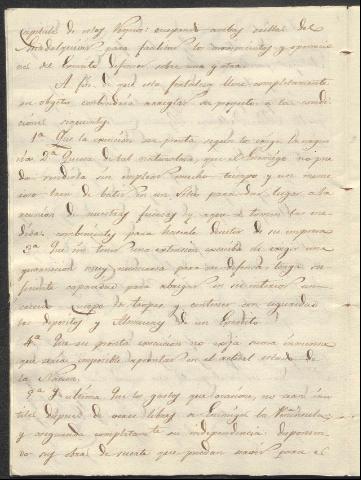 capitales de estos Reynos: ocupando ambas orillas del
Guadalquivir para facilitar los movimientos y operacio
nes del Exercito defensor sobre una y otra.
A fin de que esta fortaleza llene completamente
su objeto convendrá arreglar su proyecto a las condi
ciones siguientes
1ª Que la execucion sea pronta segun lo exige la urgen
cia 2ª Que sea de tal naturaleza, que el Enemigo no pue
da rendirla sin emplear mucho tiempo y un nume
roso tren de batir en un Sitio para dar lugar a la
reunion de nuestras fuerzas y a que se tomen las me
didas convenientes para hacerle desistir de su empresa
3ª Que sin tener una extension excesiva de exigir una
guarnicion muy numerosa para su defensa tenga su
ficiente capacidad para abrigar en su interior un
cuerpo de tropas y contener con seguridad
los depositos y Almacenes de un Exercito
4ª Que su pronta execucion no exija sumas inmensas
que seria imposible aprontar en el actual estado de
la Nacion.
5ª Y ultima. Que los gastos que ocasione, no sean inu
tiles despues de verse libre de Enemigos la Peninsula,
y asegurada completamte su independencia disponien
do sus obras de suerte que puedan servir para el